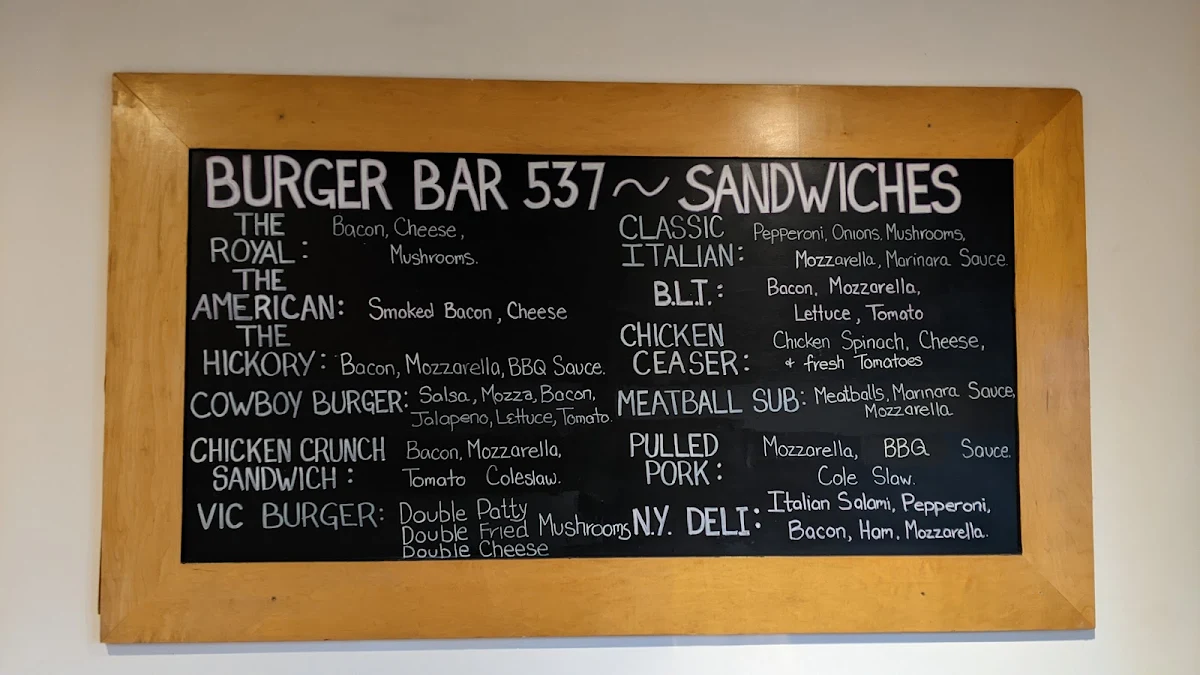 BURGER BAR 537 ~ SANDWICHES
THE
ROYAL: Bacon, Cheese,
Mushrooms.
THE
AMERICAN: Smoked Bacon, Cheese
THE
HICKORY: Bacon, Mozzarella, BBQ Sauce.
COWBOY BURGER: Salsa, Mozza, Bacon,
Jalapeno, Lettuce, Tomato.
CHICKEN CRUNCH Bacon, Mozzarella,
SANDWICH: Tomato Coleslaw.
VIC BURGER: Double Patty
Double Fried Mushrooms
Double Cheese
CLASSIC Pepperoni, Onions, Mushrooms,
ITALIAN: Mozzarella, Marinara Sauce.
B.L.T.: Bacon, Mozzarella,
Lettuce, Tomato
CHICKEN Chicken Spinach, Cheese,
CEASER: + fresh Tomatoes
MEATBALL SUB: Meatballs, Marinara Sauce,
Mozzarella
PULLED Mozzarella, BBQ Sauce.
PORK: Cole Slaw.
N.Y. DELI: Italian Salami, Pepperoni,
Bacon, Ham, Mozzarella.